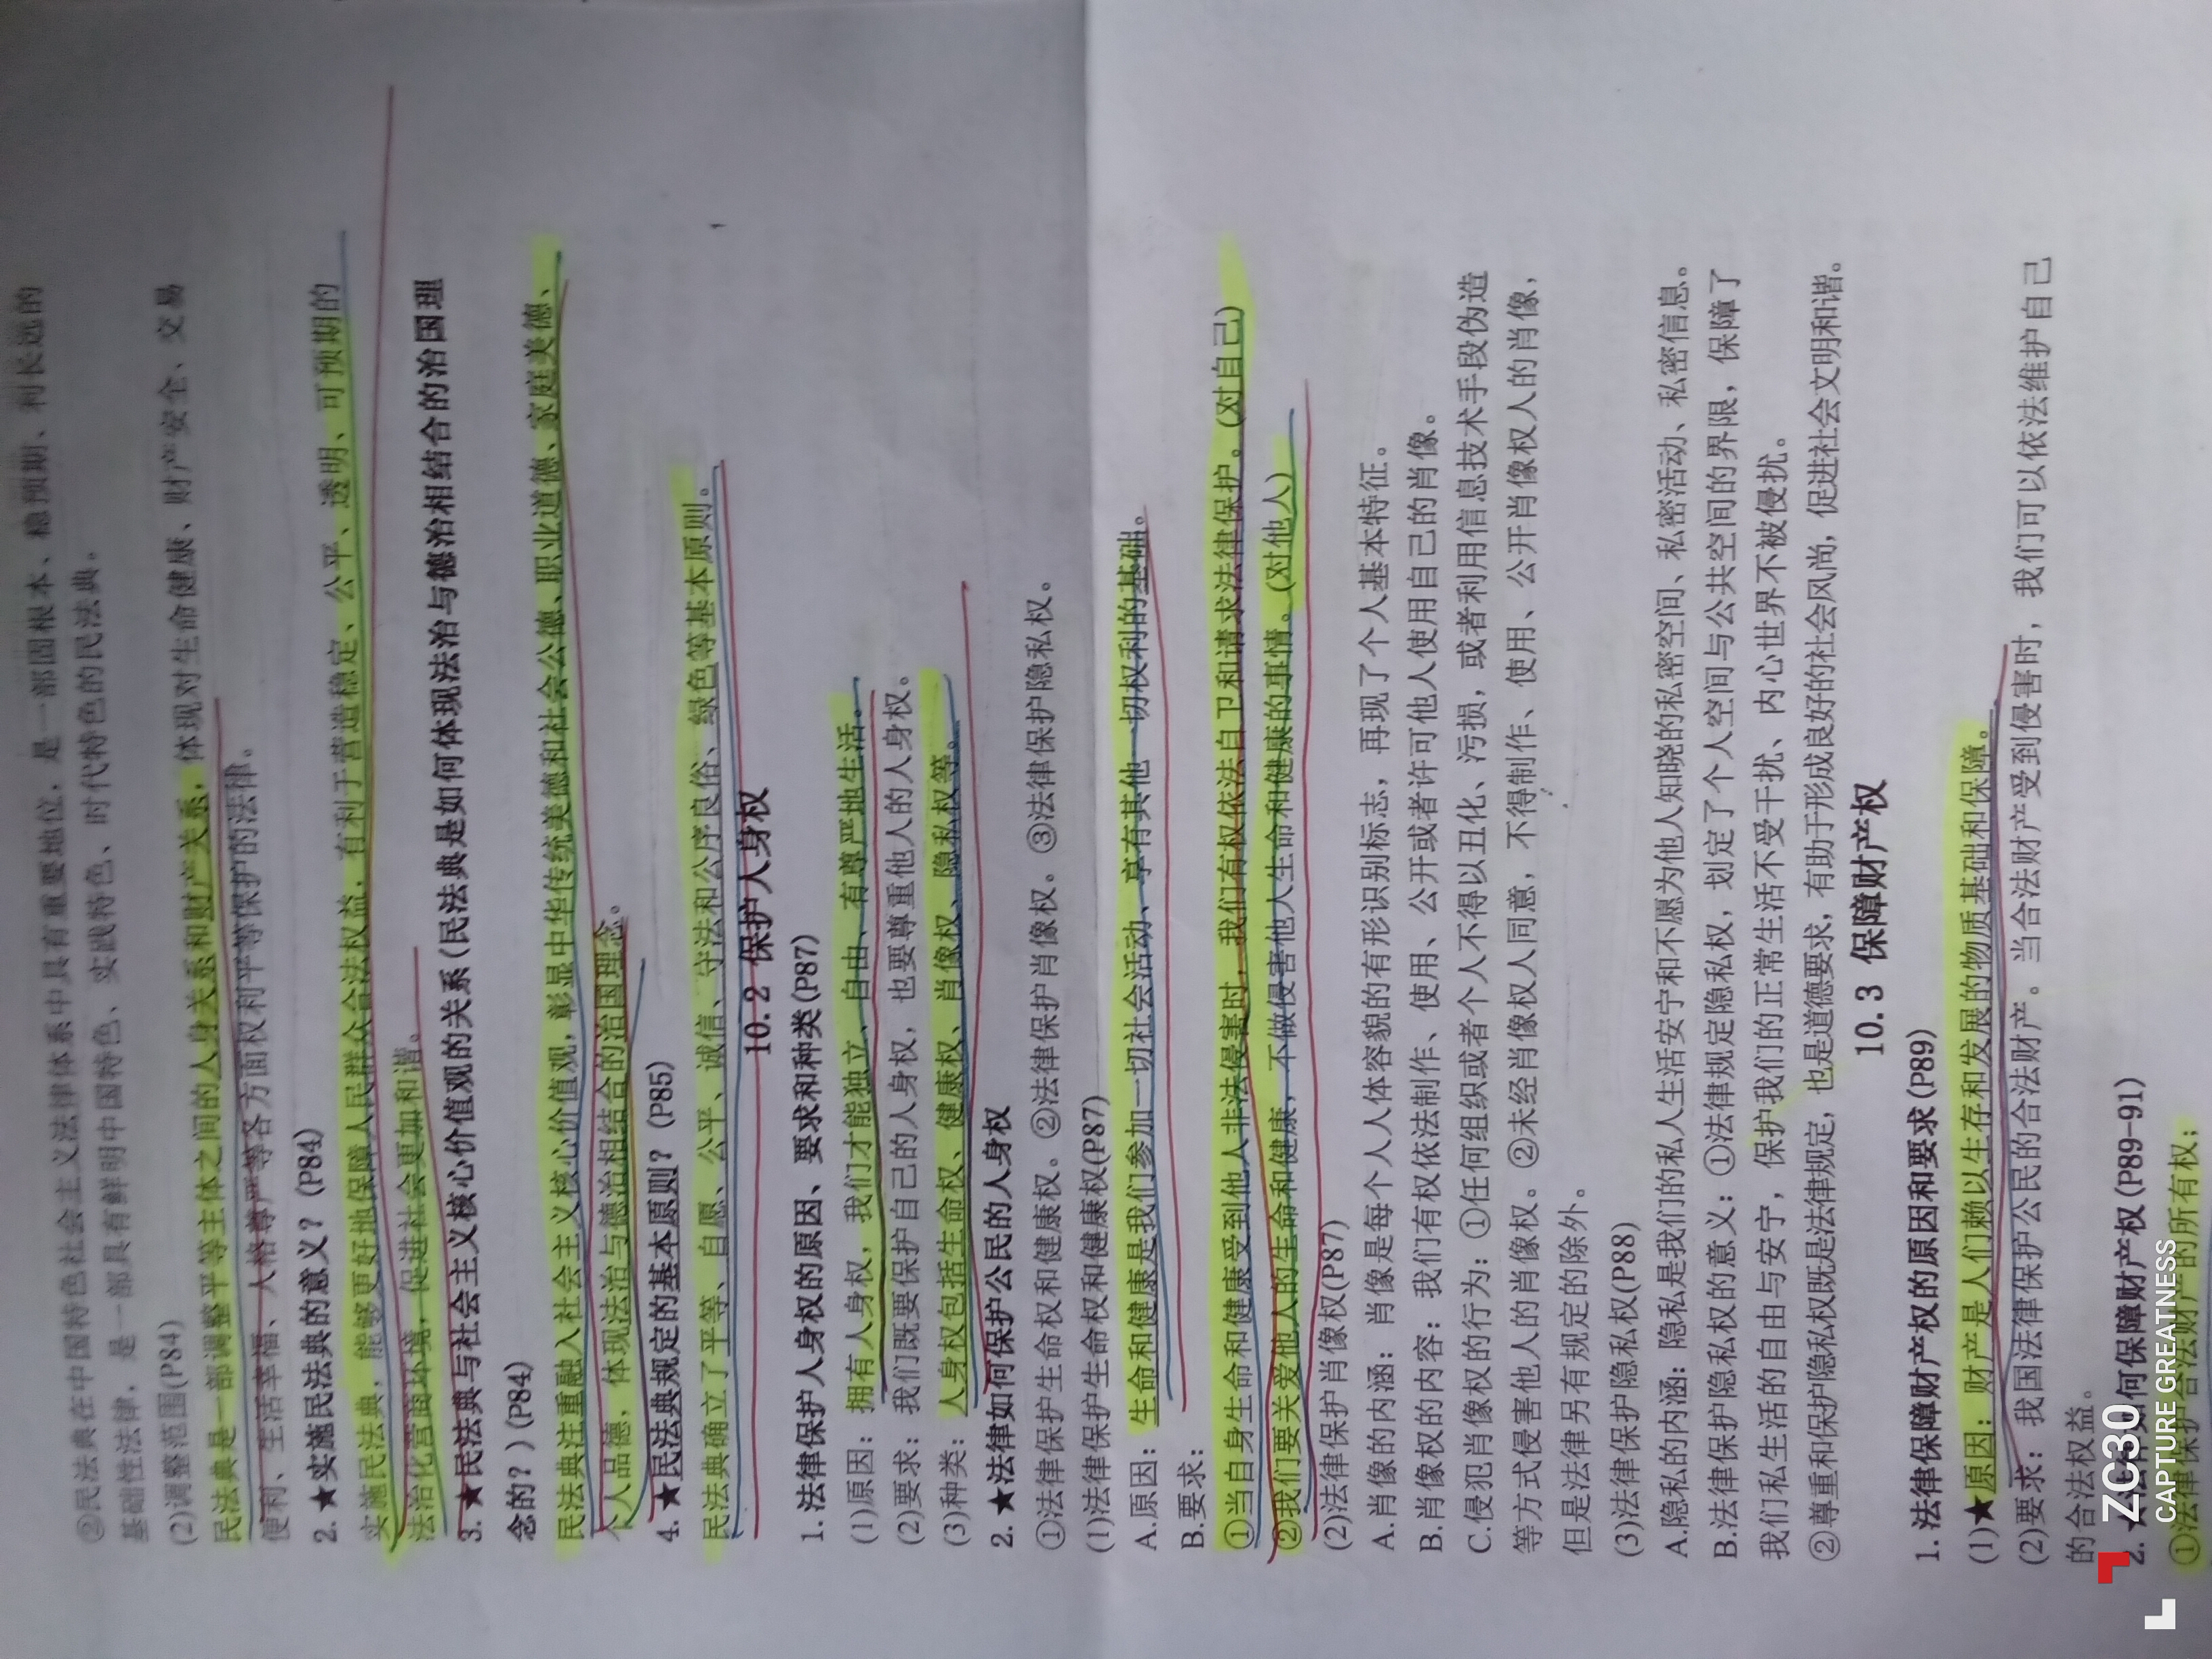 ②民法典在中国特色社会主义法律体系中具有重要地位，是一部固根本、稳预期、利长远的
基础性法律，是一部具有鲜明中国特色、实践特色、时代特色的民法典。
(2)调整范围(P84)
民法典是一部调整平等主体之间的人身关系和财产关系，体现对生命健康、财产安全、交易
便利、生活幸福、人格尊严等各方面权利平等保护的法律。
2.★实施民法典的意义？(P84)
实施民法典，能够更好地保障人民群众合法权益，有利于营造稳定、公平、透明、可预期的
法治化营商环境，促进社会更加和谐。
3.★民法典与社会主义核心价值观的关系(民法典是如何体现法治与德治相结合的治国理
念的？)(P84)
民法典注重融入社会主义核心价值观，彰显中华传统美德和社会公德、职业道德、家庭美德、
个人品德，体现法治与德治相结合的治国理念。
4.★民法典规定的基本原则？(P85)
民法典确立了平等、自愿、公平、诚信、守法和公序良俗、绿色等基本原则。
10.2 保护人身权
1.法律保护人身权的原因、要求和种类(P87)
(1)原因：拥有人身权，我们才能独立、自由、有尊严地生活。
(2)要求：我们既要保护自己的人身权，也要尊重他人的人身权。
(3)种类：人身权包括生命权、健康权、肖像权、隐私权等。
2.★法律如何保护公民的人身权
①法律保护生命权和健康权。②法律保护肖像权。③法律保护隐私权。
(1)法律保护生命权和健康权(P87)
A.原因：生命和健康是我们参加一切社会活动、享有其他一切权利的基础。
B.要求：
①当自身生命和健康受到他人非法侵害时，我们有权依法自卫和请求法律保护。(对自己)
②我们要关爱他人的生命和健康，不做侵害他人生命和健康的事情。(对他人)
(2)法律保护肖像权(P87)
A.肖像的内涵：肖像是每个人人体容貌的有形识别标志，再现了个人基本特征。
B.肖像权的内容：我们有权依法制作、使用、公开或者许可他人使用自己的肖像。
C.侵犯肖像权的行为：①任何组织或者个人不得以丑化、污损，或者利用信息技术手段伪造
等方式侵害他人的肖像权。②未经肖像权人同意，不得制作、使用、公开肖像权人的肖像，
但是法律另有规定的除外。
(3)法律保护隐私权(P88)
A.隐私的内涵：隐私是我们的私人生活安宁和不愿为他人知晓的私密空间、私密活动、私密信息。
B.法律保护隐私权的意义：①法律规定隐私权，划定了个人空间与公共空间的界限，保障了
我们私生活的自由与安宁，保护我们的正常生活不受干扰、内心世界不被侵扰。
②尊重和保护隐私权既是法律规定，也是道德要求，有助于形成良好的社会风尚，促进社会文明和谐。
10.3 保障财产权
1.法律保障财产权的原因和要求(P89)
(1)★原因：财产是人们赖以生存和发展的物质基础和保障。
(2)要求：我国法律保护公民的合法财产。当合法财产受到侵害时，我们可以依法维护自己
的合法权益。
2.★法律如何保障财产权(P89-91)
①法律保护合法财产的所有权；
ZC30
CAPTURE GREATNESS